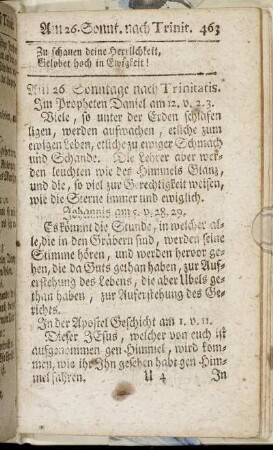 Am 26. Sonnt. nach Trinit. 463
Zu schauen deine Herrlichkeit,
Gelobet hoch in Ewigkeit!
Am 26. Sonntage nach Trinitatis.
Im Propheten Daniel am 12. v. 2. 3.
Viele, so unter der Erden schlafen
ligen, werden aufwachen, etliche zum
ewigen Leben, etliche zu ewiger Schmach
und Schande. Die Lehrer aber wer-
den leuchten wie des Himmels Glanz,
und die, so viel zur Gerechtigkeit weisen,
wie die Sterne immer und ewiglich.
Johannis am 5. v. 28. 29.
Es kömmt die Stunde, in welcher al-
le, die in den Gräbern sind, werden seine
Stimme hören, und werden hervor ge-
hen, die da Guts gethan haben, zur Auf-
erstehung des Lebens, die aber Ubels ge-
than haben, zur Auferstehung des Ge-
richts.
In der Apostel Geschicht am 1. v. 11.
Dieser JEsus, welcher von euch ist
aufgenommen gen Himmel, wird kom-
men, wie ihr Ihn gesehen habt gen Him-
mel fahren. U 4 In